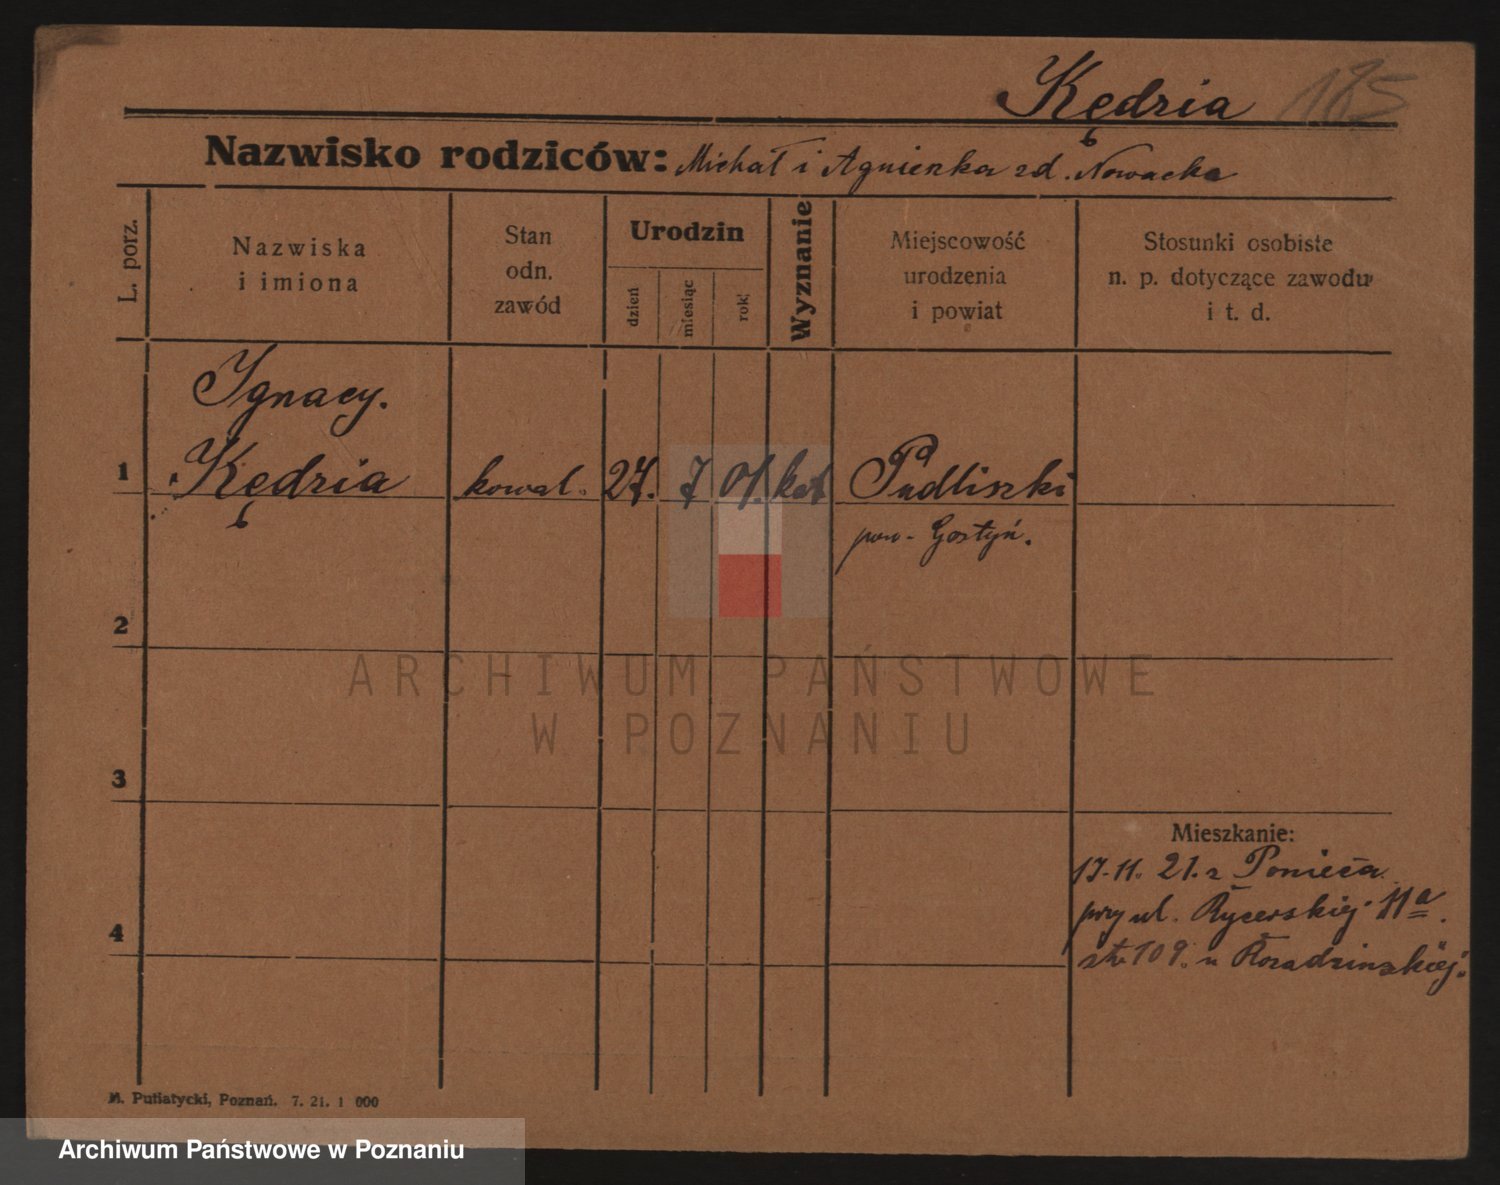 Kędzia 185
Nazwisko rodziców: Michał i Agnieszka zd. Nowacka
L. porz.
Nazwiska
i imiona
Stan
odn.
zawód
Urodzin
dzień
miesiąc
rok
Wyznanie
Miejscowość
urodzenia
i powiat
Stosunki osobiste
n. p. dotyczące zawodu
i t. d.
Ignacy.
1 Kędzia kowal. 27. 7 01. kat Pudliszki
pow. Gostyń.
2
3
Mieszkanie:
17.11.21. z Ponieca
przy ul. Rycerskiej 11a.
4
str 109. u
M. Putiatycki, Poznań. 7. 21. 1 000
ARCHIWUM PAŃSTWOWE
W POZNANIU
Archiwum Państwowe w Poznaniu